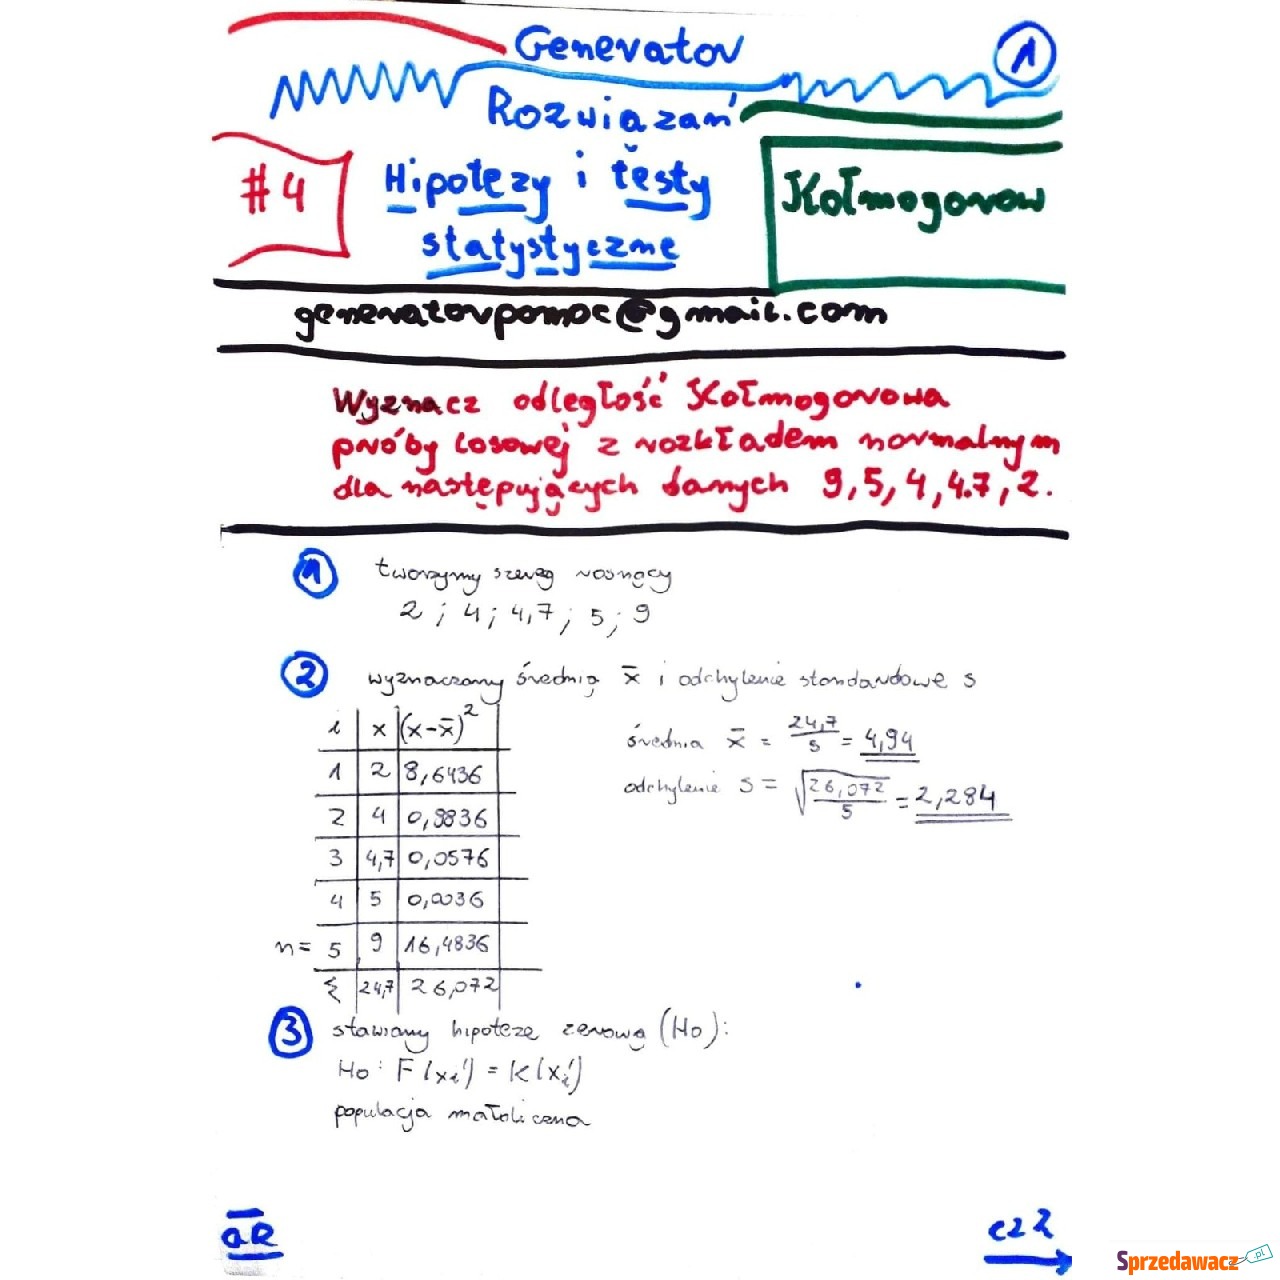 Generator
1
Rozwiązań
#4
Hipotezy i testy
statystyczne
Kołmogorow
generatorpomoc@gmail.com
Wyznacz odległość Kołmogorowa
próby losowej z rozkładem normalnym
dla następujących danych 9, 5, 4, 4.7, 2.
1 tworzymy szereg rosnący
2 ; 4 ; 4,7 ; 5 ; 9
2 wyznaczamy średnią x̄ i odchylenie standardowe s
i x (x-x̄)²
średnia x̄ = 24,7/5 = 4,94
1 2 8,6436
odchylenie s = √(26,072/5) = 2,284
2 4 0,8836
3 4,7 0,0576
4 5 0,0036
n = 5 9 16,4836
Σ 24,7 26,072
3 stawiamy hipotezę zerową (Ho):
Ho: F(xi') = K(xi')
populacja małoliczna
aR
cz 2
Sprzedawacz.pl